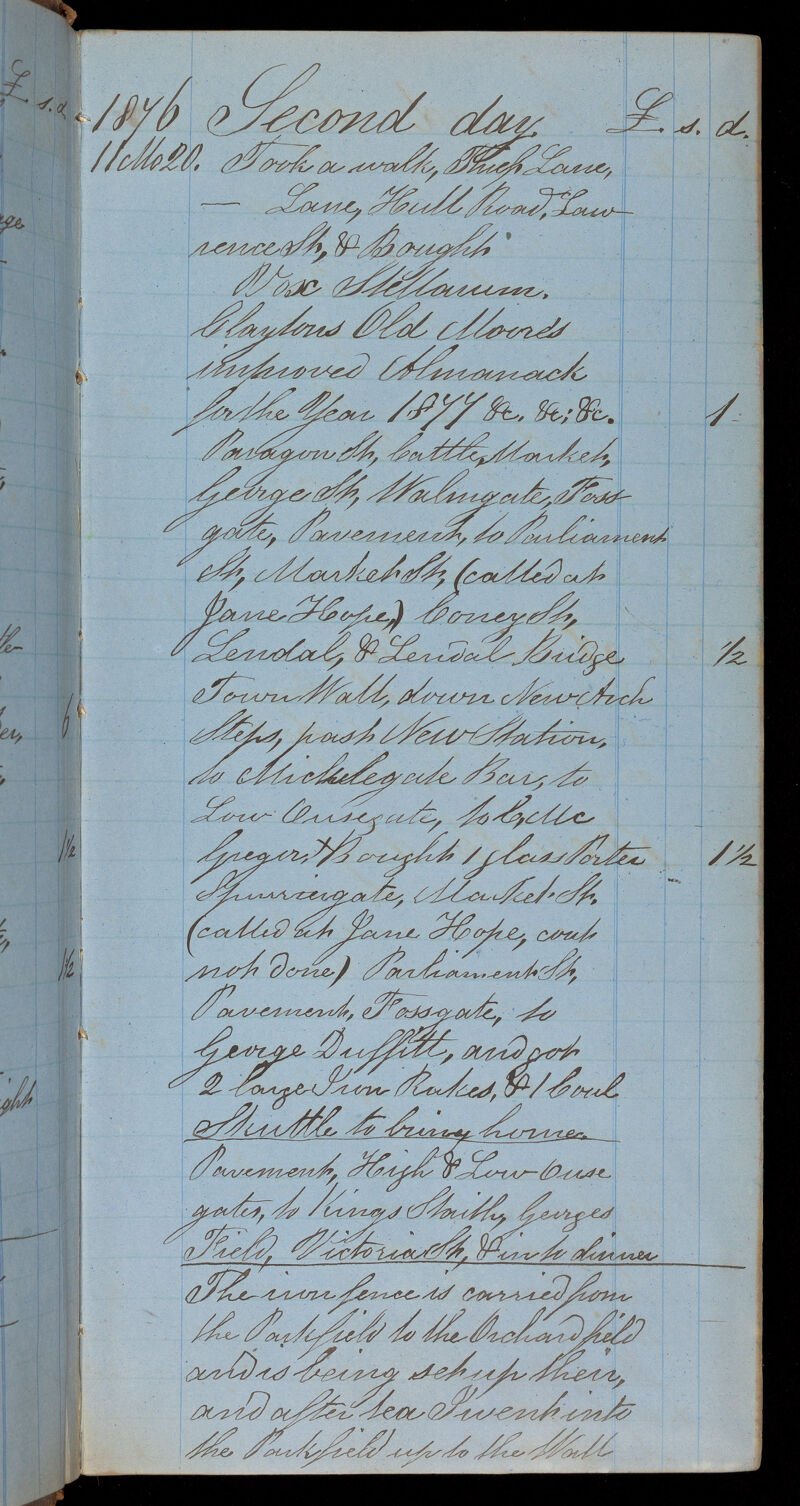 1876 Second day £. s. d.
11 Mo 20. Took a walk, Thief Lane,
— Lane, Hull Road, Law-
rence St, & Bought
Vox Stellarum.
Claytons Old Moore's
improved Almanack
for the Year 1877 &c. &c; &c. 1
Paragon St, Cattle Market,
George St, Walmgate, Foss-
gate, Pavement, to Parliament
St, Market St, (called at
Jane Hope,) Coney St,
Lendal, & Lendal Bridge ½
Town Wall, down New Arch
Steps, past New Station,
to Micklegate Bar, to
Low Ousegate, to C, Mc
Gregor, & Bought 1 glass Porter 1½
Spurriergate, Market St.
(called at Jane Hope, coat
not done) Parliament St,
Pavement, Fossgate, to
George Duffitt, and got
2 large Iron Rakes, & 1 Coal
Skuttle to bring home.
Pavement, High & Low Ouse
gates, to Kings Staith, Georges
Field, Victoria St, & in to dinner
The iron fence is carried from
the Parkfield to the Orchard field
and is being set up their,
and after tea I went into
the Parkfield up to the Wall